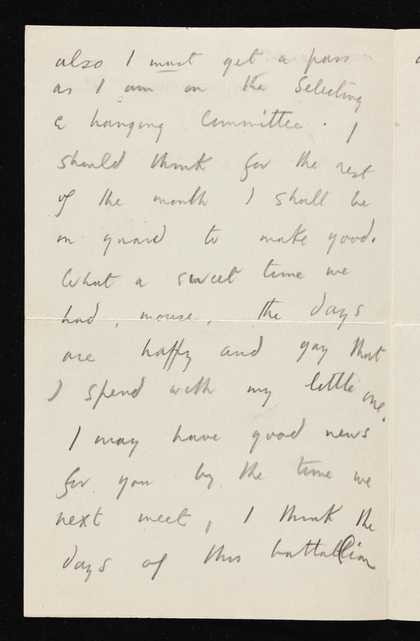 also I must get a pass
as I am on the Selecting
& hanging Committee. I
should think for the rest
of the month I shall be
on guard to make good.
What a sweet time we
had, mouse, the days
are happy and gay that
I spend with my little one.
I may have good news
for you by the time we
next meet, I think the
days of this battallion